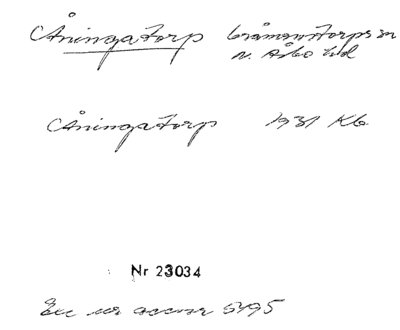 Åningatorp Gråmanstorps sn
n. Åsbo hd
Åningatorp 1931 Kb
Nr 23034
Enl. ur accnr 5495